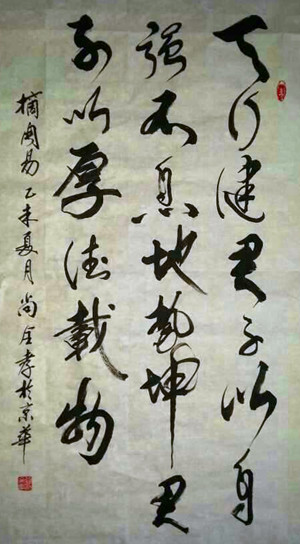 天行健君子以自
强不息地勢坤君
子以厚德載物
摘周易乙未夏月尚全孝於京華